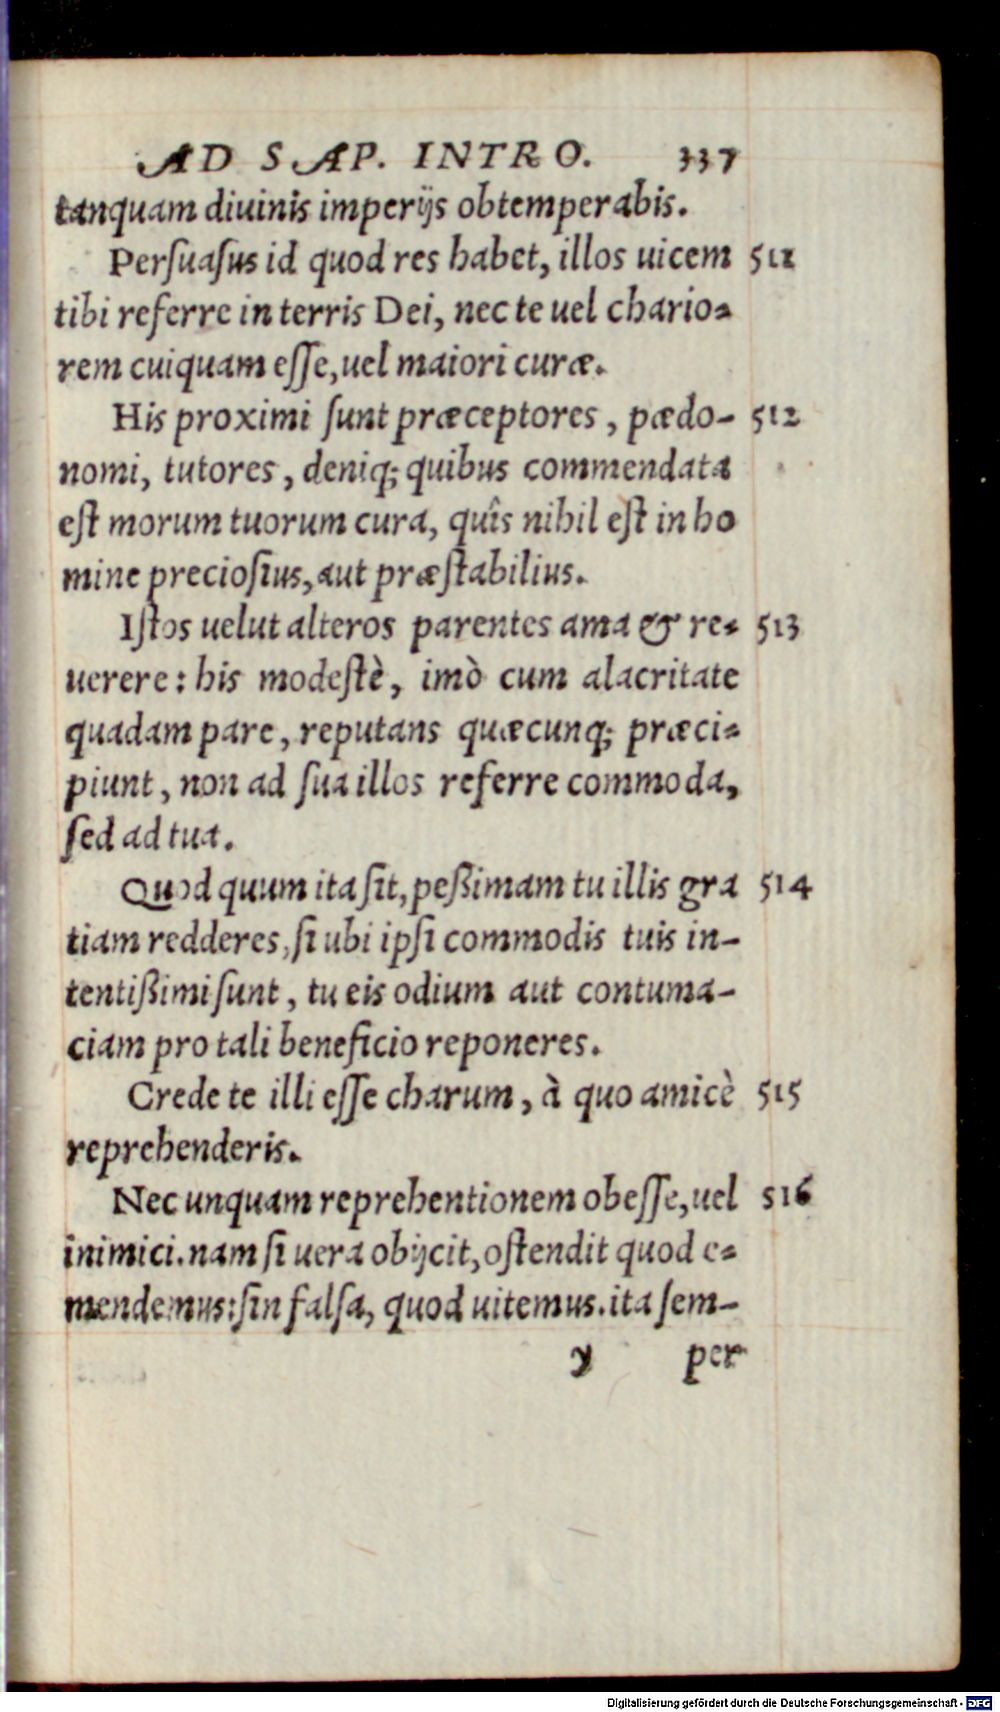 AD SAP. INTRO. 337
tanquam diuinis imperijs obtemperabis.
Perſuaſus id quod res habet, illos uicem 511
tibi referre in terris Dei, nec te uel chario-
rem cuiquam eſſe, uel maiori curæ.
His proximi ſunt præceptores, pædo- 512
nomi, tutores, deniq; quibus commendata
eſt morum tuorum cura, quîs nihil eſt in ho
mine precioſius, aut præſtabilius.
Iſtos uelut alteros parentes ama & re- 513
uerere: his modeſtè, imò cum alacritate
quadam pare, reputans quæcunq; præci-
piunt, non ad ſua illos referre commoda,
ſed ad tua.
Quod quum ita ſit, peßimam tu illis gra 514
tiam redderes, ſi ubi ipſi commodis tuis in-
tentißimi ſunt, tu eis odium aut contuma-
ciam pro tali beneficio reponeres.
Crede te illi eſſe charum, à quo amicè 515
reprehenderis.
Nec unquam reprehentionem obeſſe, uel 516
inimici. nam ſi uera obijcit, oſtendit quod e-
mendemus: ſin falſa, quod uitemus. ita ſem-
y per
Digitalisierung gefördert durch die Deutsche Forschungsgemeinschaft - DFG